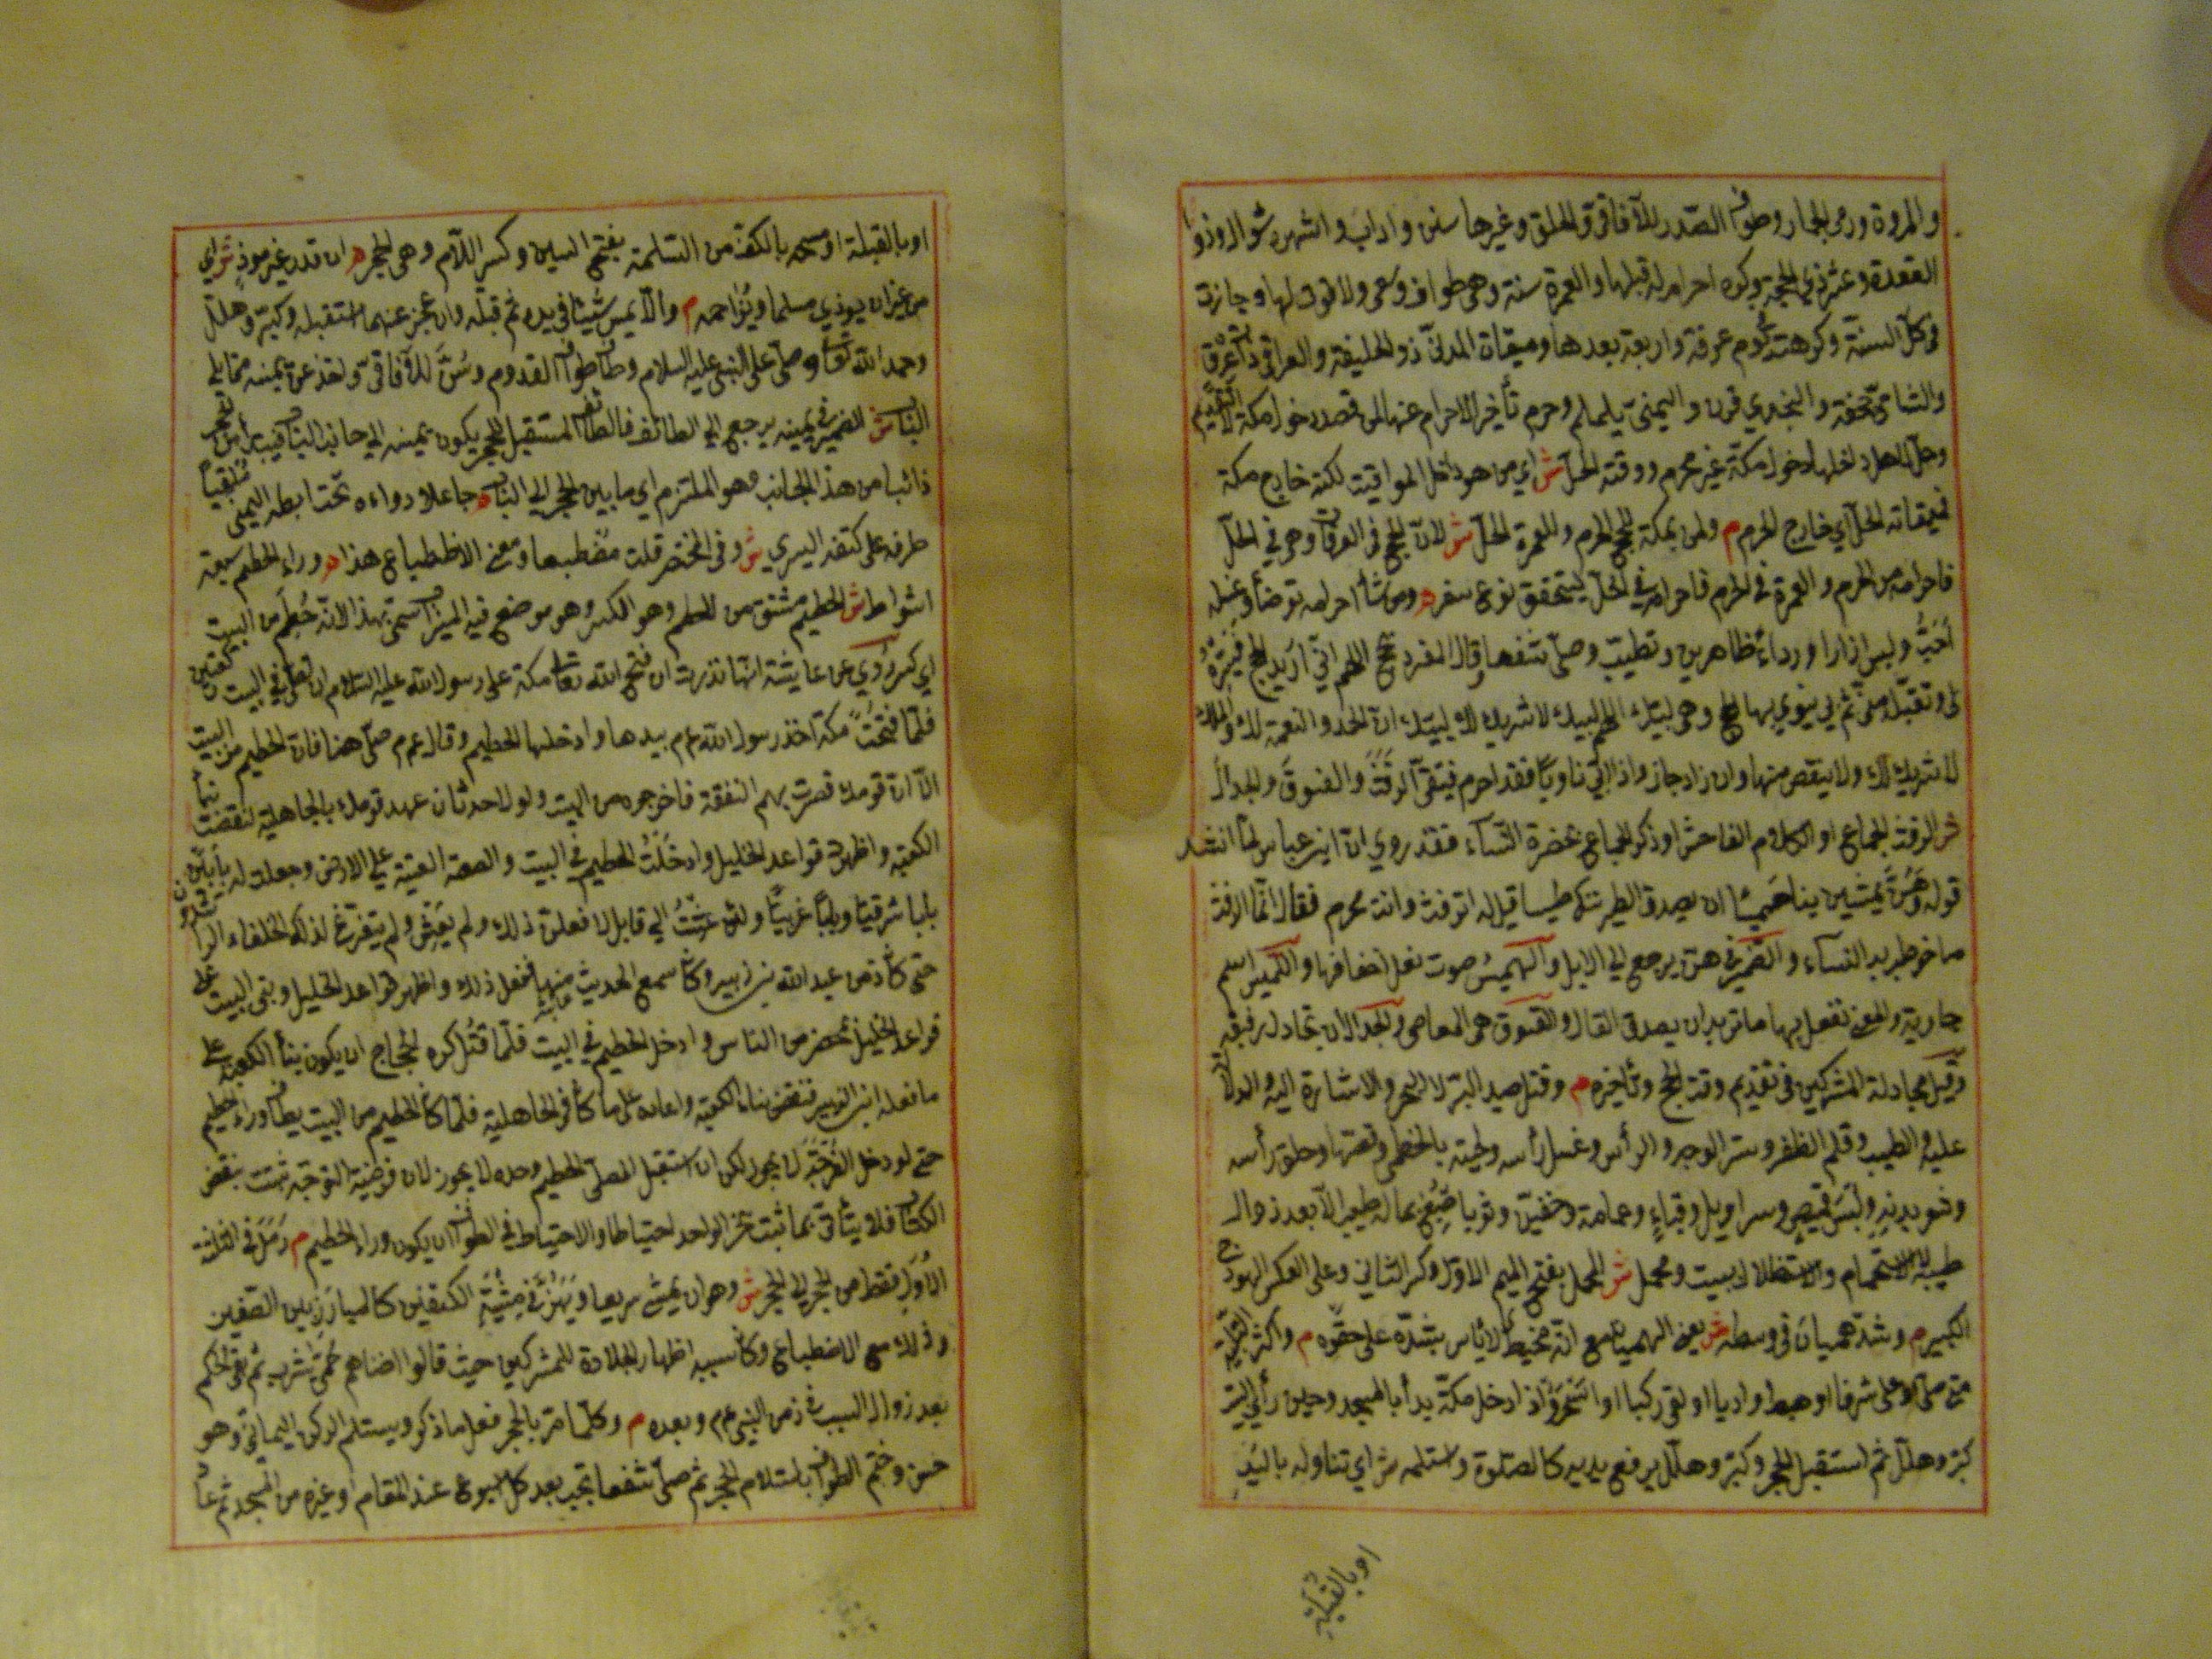 والمروة ورمى الجمار وطواف الصدر للآفاقى والحلق وغيرها سنن واداب واشهره شوال وذو
القعدة وعشر ذى الحجة وكره احرامه له قبلها والعمرة سنة وهى طواف وسعى ولا فوت لها وجازت
فى كل السنة وكرهت يوم عرفة واربعة بعدها وميقات المدنى ذو الحليفة والعراقى ذات عرق
والشامى جحفة والنجدي قرن واليمنى يلملم وحرم تأخير الاحرام عنها لمن قصد دخول مكة لا التقديم
وحل لاهل داخلها دخول مكة غير محرم ووقته الحل ش اي من هو داخل المواقيت لكنه خارج مكة
فميقاته الحل اي خارج الحرم م ولمن بمكة للحج الحرم وللعمرة الحل ش لان الحج فى العرفات وهى فى الحل
فاحرامه من الحرم والعمرة فى الحرم فاحرامه فى الحل ليتحقق نوع سفر م ومن شاء احرامه توضأ وغسله
احب ولبس ازارا ورداء طاهرين وتطيب وصلى شفعا وقال المفرد بحج اللهم انى اريد الحج فيسره
لى وتقبله منى ثم لبى ينوي بها الحج وهى لبيك اللهم لبيك لا شريك لك لبيك ان الحمد والنعمة لك والملك
لا شريك لك ولا ينقص منها وان زاد جاز واذا لبى ناويا فقد احرم فيتقى الرفث والفسوق والجدال
ش الرفث الجماع او الكلام الفاحش او ذكر الجماع بحضرة النساء فقد روي ان ابن عباس لما انشد
قوله وهن يمشين بنا هميسا ان يصدق الطير ننك لميسا قيل له اترفث وانت محرم فقال انما الرفث
ما خوطب به النساء والضمير فى هن يرجع الى الابل والهميس صوت نعل اخفافها واللميس اسم
جارية والمعنى نفعل بها ما نريد ان يصدق الفال والفسوق هى المعاصى والجدال ان يجادل رفيقه
وقيل مجادلة المشركين فى تقديم وقت الحج وتأخيره م وقتل صيد البر لا البحر والاشارة اليه والدلالة
عليه والطيب وقلم الظفر وستر الوجه والرأس وغسل رأسه ولحيته بالخطمى وقصها وحلق رأسه
وشعر بدنه ولبس قميص وسراويل وقباء وعمامة وخفين وثوبا صبغ بما له طيب الا بعد زوال
طيبه لا الاستحمام والاستظلال ببيت ومحمل ش المحمل بفتح الميم الاول وكسر الثانى وعلى العكس الهودج
الكبير م وشد هميان فى وسطه ش يعنى الهميان مع انه مخيط لا بأس بشده على حقوه م واكثر التلبية
متى صلى او علا شرفا او هبط واديا او لقى ركبا او اسحر واذا دخل مكة بدأ بالمسجد وحين رأى البيت
كبر وهلل ثم استقبل الحجر وكبر وهلل يرفع يديه كالصلوة واستلمه ش اي تناوله باليد
او بالقبلة
او بالقبلة او مسحه بالكف من السلمة بفتح السين وكسر اللام وهى الحجر م ان قدر غير موذ ش اي
من غير ان يوذي مسلما ويزاحمه م والا يمس شيئا فى يده ثم قبله وان عجز عنهما استقبله وكبر وهلل
وحمد الله تعالى وصلى على النبى عليه السلام وطاف طواف القدوم وسن للآفاقى واخذ عن يمينه مما يلى
الباب ش الضمير فى يمينه يرجع الى الطائف فالطائف المستقبل للحجر يكون يمينه الى جانب الباب فيبدأ من الحجر
ذاهبا من هذا الجانب وهو الملتزم اي ما بين الحجر الى الباب م جاعلا رداءه تحت ابطه اليمنى ملقيا
طرفه على كتفه اليسري ش وفى المختصر قلت مضطبعا ومعنى الاضطباع هذا م وراء الحطيم سبعة
اشواط ش الحطيم مشتق من الحطم وهو الكسر وهو موضع فيه الميزاب سمى بهذا لانه حطم من البيت
اي كسر روي عن عايشة انها نذرت ان فتح الله تعالى مكة على رسول الله عليه السلام ان تصلى فى البيت ركعتين
فلما فتحت مكة اخذ رسول الله عم بيدها وادخلها الحطيم وقال عم صلى ههنا فان الحطيم من البيت
الا ان قومك قصرت بهم النفقة فاخرجوه من البيت ولولا حدثان عهد قومك بالجاهلية لنقضت بناء
الكعبة واظهرت قواعد الخليل وادخلت الحطيم فى البيت والصقت العتبة على الارض وجعلت له بابين
بابا شرقيا وبابا غربيا ولئن عشت الى قابل لافعلن ذلك ولم يعش ولم يتفرغ لذلك الخلفاء الراشدون
حتى كان زمن عبد الله بن زبير وكان سمع الحديث منها ففعل ذلك واظهر قواعد الخليل وبنى البيت على
قواعد الخليل بمحضر من الناس وادخل الحطيم فى البيت فلما قتل كره الحجاج ان يكون بناء الكعبة على
ما فعله ابن الزبير فنقض بناء الكعبة واعاده على ما كان فى الجاهلية فلما كان الحطيم من البيت يطاف وراء الحطيم
حتى لو دخل الفرجة لا يجوز لكن ان استقبل المصلى الحطيم وحده لا يجوز لان فرضية التوجه ثبت بنص
الكتاب فلا يتأدى بما ثبت بخبر الواحد احتياطا والاحتياط فى الطواف ان يكون وراء الحطيم م رمل فى الثلثة
الاول فقط من الحجر الى الحجر ش وهو ان يمشى سريعا ويهز فى مشيته الكتفين كالمبارز بين الصفين
وذلك مع الاضطباع وكان سببه اظهار الجلادة للمشركين حيث قالوا اضناهم حمى يثرب ثم بقى الحكم
بعد زوال السبب فى زمن النبى عم وبعده م وكلما مر بالحجر فعل ما ذكر ويستلم الركن اليمانى وهو
حسن وختم الطواف باستلام الحجر ثم صلى شفعا يجب بعد كل اسبوع عند المقام او غيره من المسجد ثم عاد